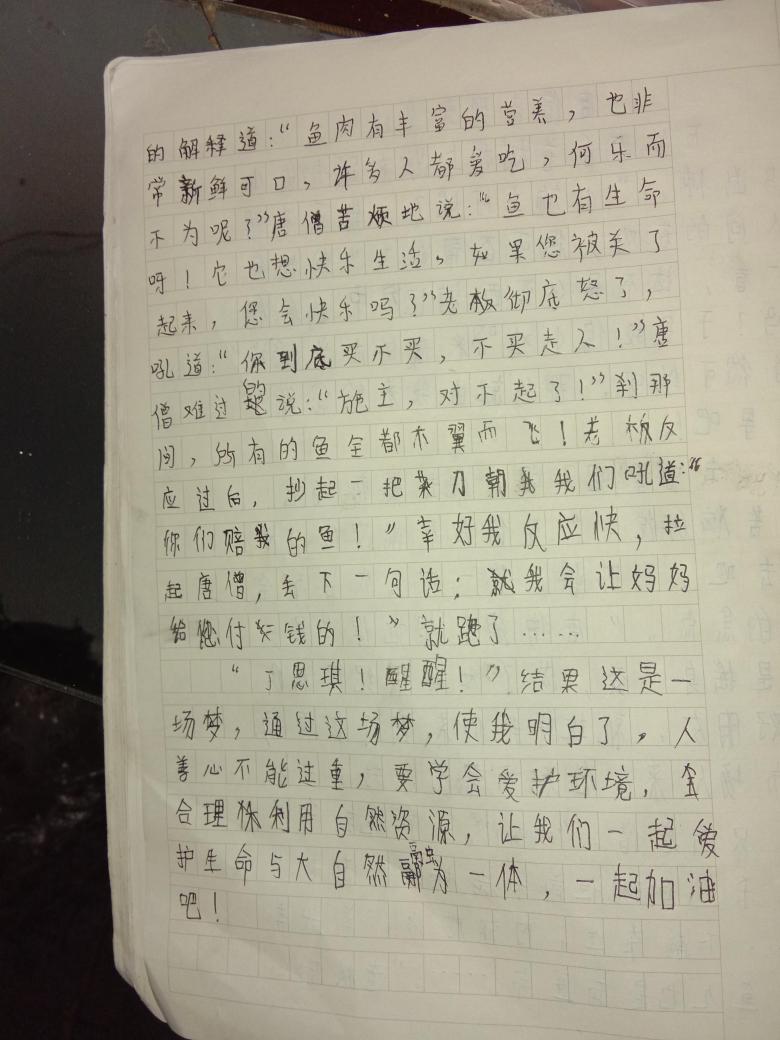 的解释道：“鱼肉有丰富的营养，也非
常新鲜可口，许多人都爱吃，何乐而
不为呢？”唐僧苦烦地说：“鱼也有生命
呀！它也想快乐生活。如果您被关了
起来，您会快乐吗？”老板彻底怒了，
吼道：“你到底买不买，不买走人！”唐
僧难过的说：“施主，对不起了！”刹那
间，所有的鱼全都不翼而飞！老板反
应过后，抄起一把菜刀朝我我们吼道：“
你们赔我的鱼！”幸好我反应快，拉
起唐僧，丢下一句话：就我会让妈妈
给您付钱的！”就跑了……
“丁思琪！醒醒！”结果这是一
场梦，通过这场梦，使我明白了。人
善心不能过重，要学会爱护环境，
合理利用自然资源，让我们一起爱
护生命与大自然融为一体，一起加油
吧！